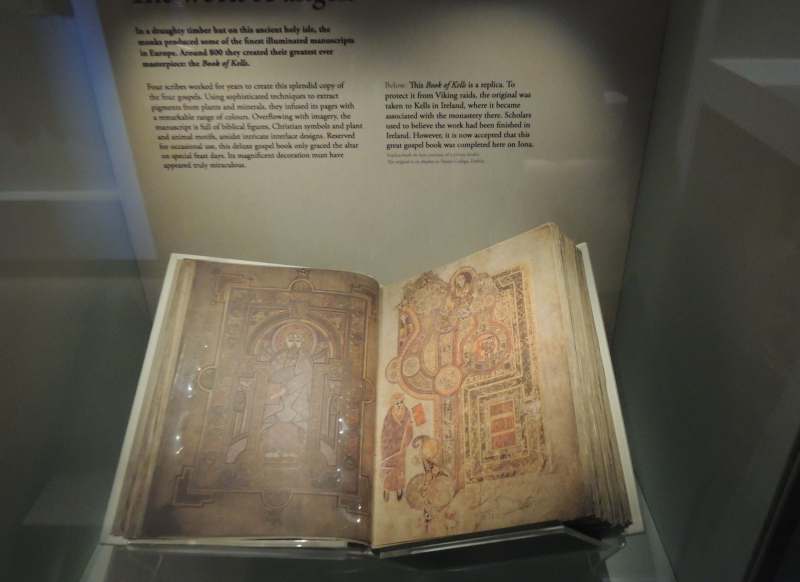 In a draughty timber hut on this ancient holy isle, the
monks produced some of the finest illuminated manuscripts
in Europe. Around 800 they created their greatest ever
masterpiece: the Book of Kells.
Four scribes worked for years to create this splendid copy of
the four gospels. Using sophisticated techniques to extract
pigments from plants and minerals, they infused its pages with
a remarkable range of colours. Overflowing with imagery, the
manuscript is full of biblical figures, Christian symbols and plant
and animal motifs, amidst intricate interlace designs. Reserved
for occasional use, this deluxe gospel book only graced the altar
on special feast days. Its magnificent decoration must have
appeared truly miraculous.
Below: This Book of Kells is a replica. To
protect it from Viking raids, the original was
taken to Kells in Ireland, where it became
associated with the monastery there. Scholars
used to believe the work had been finished in
Ireland. However, it is now accepted that this
great gospel book was completed here on Iona.
The original is on display in Trinity College, Dublin.